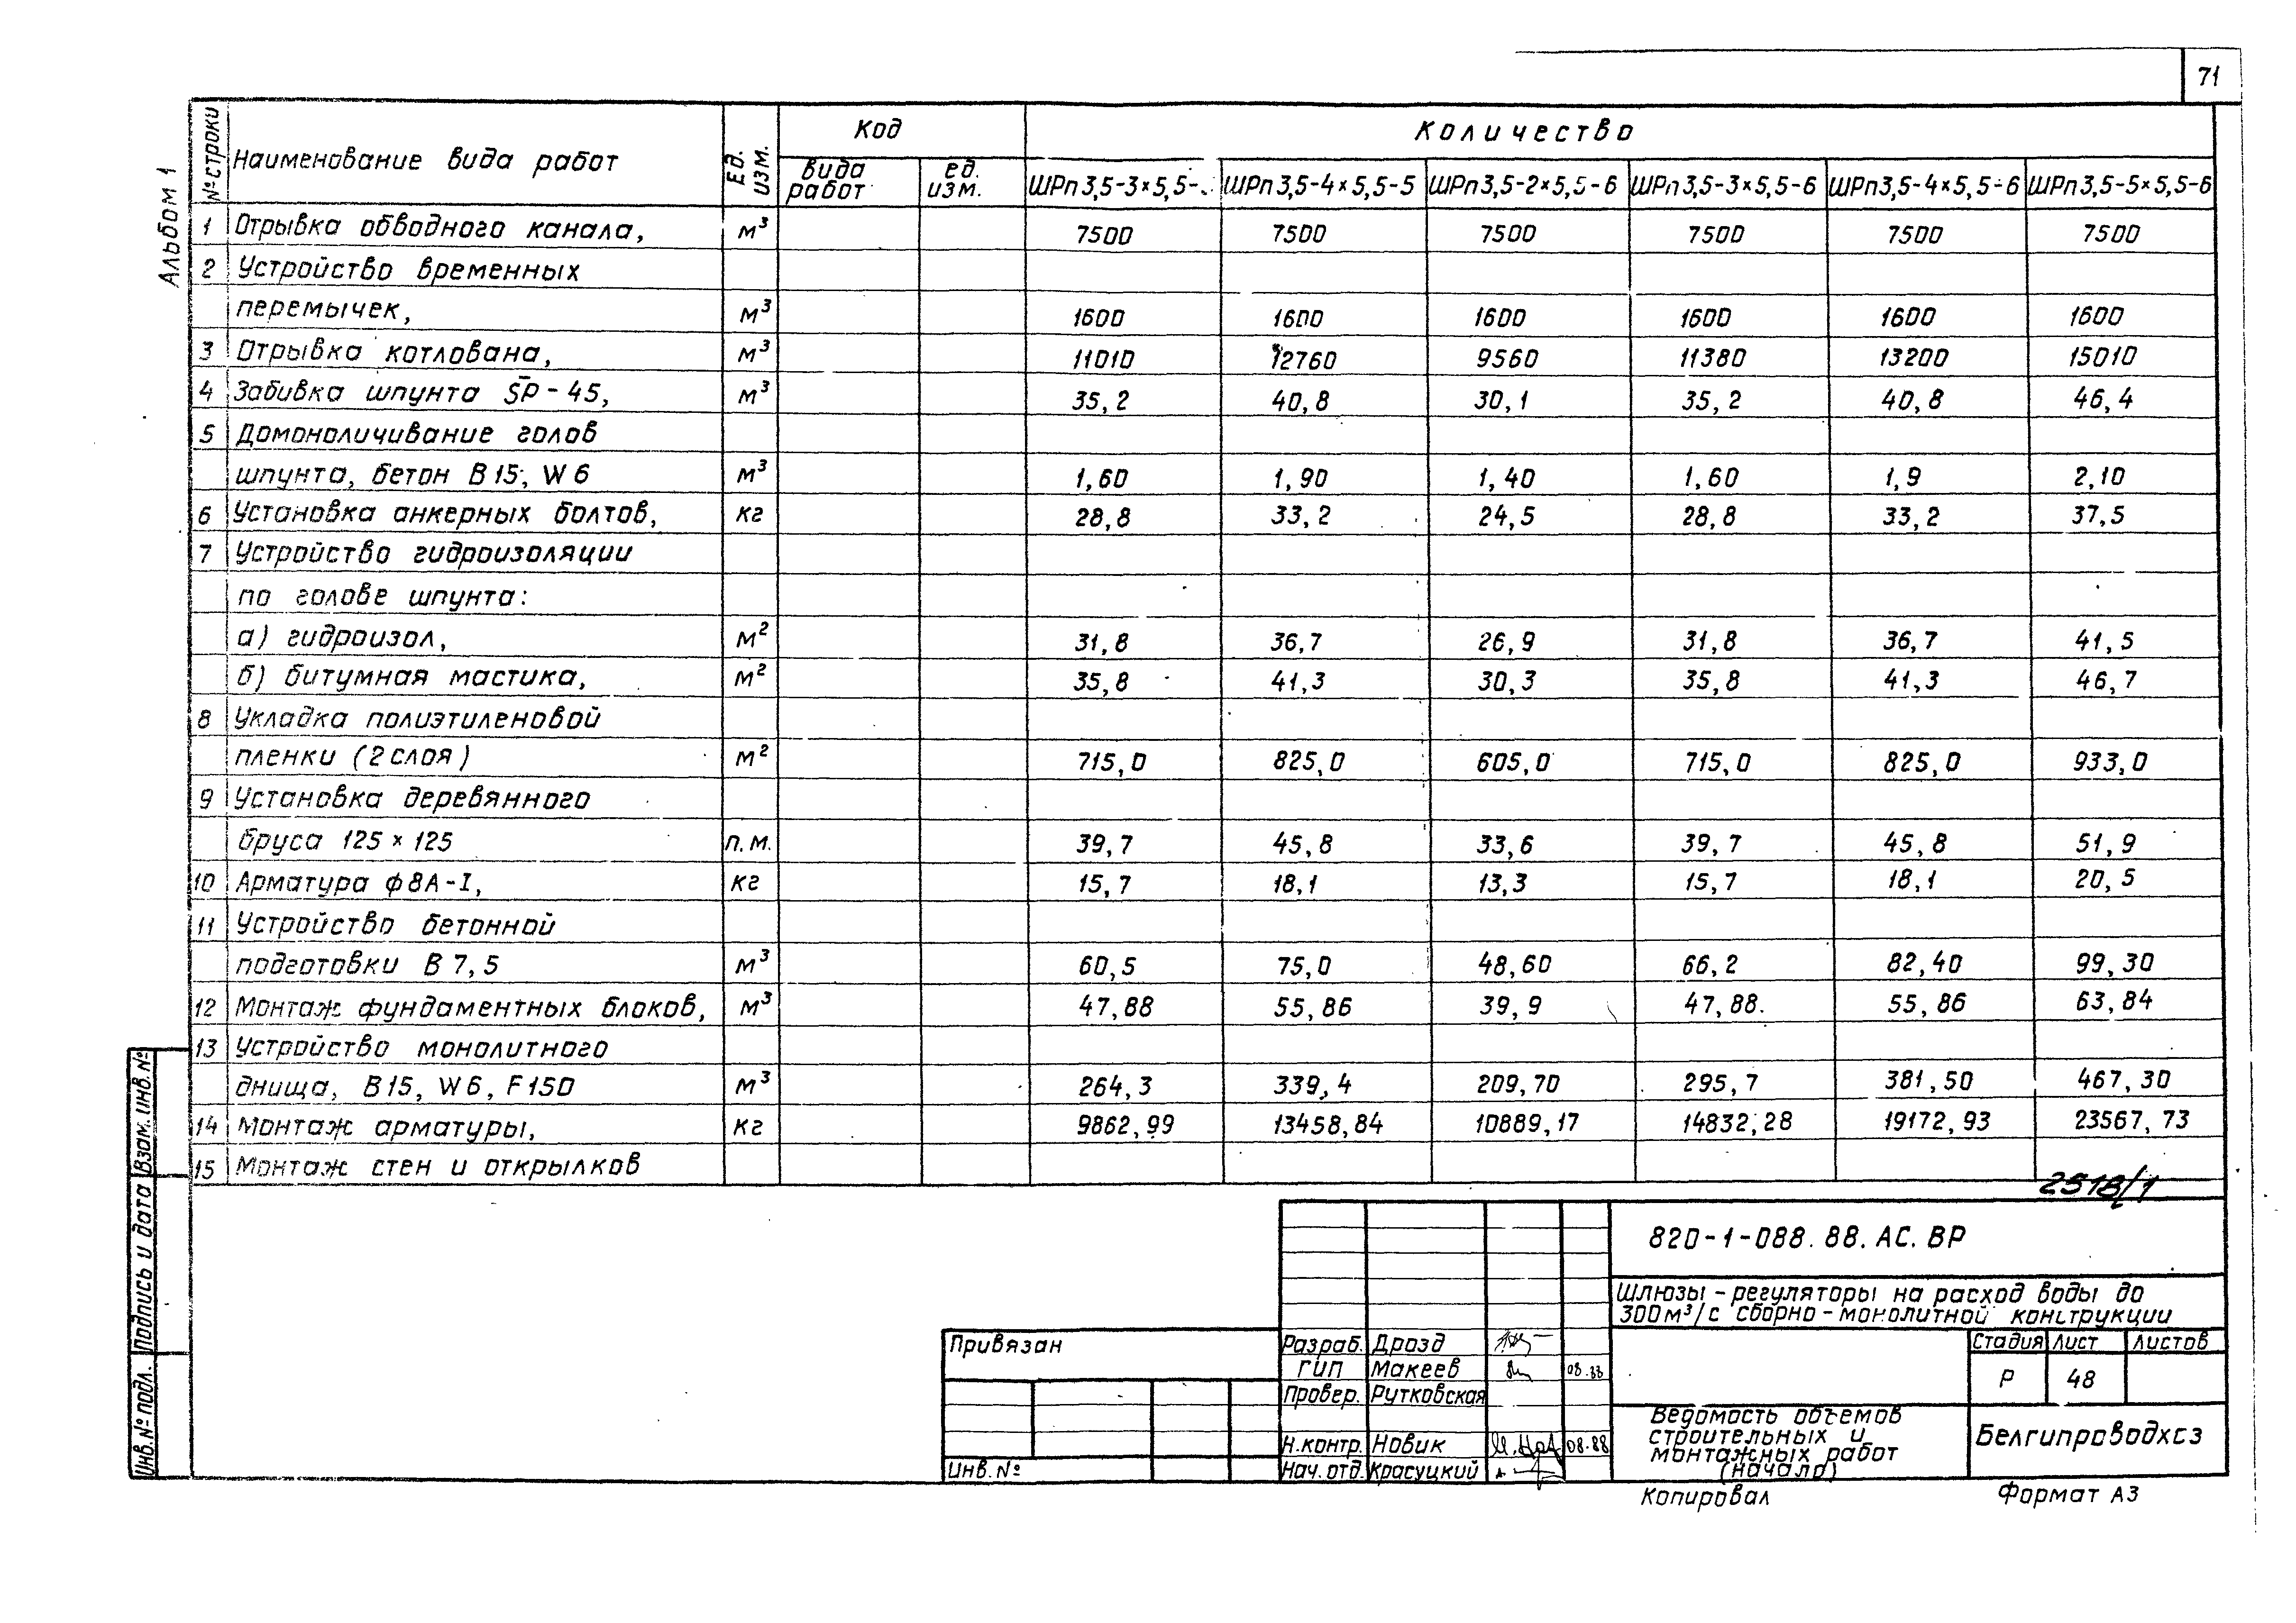 71
Альбом 1
№ строки | Наименование вида работ | Ед. изм. | Код | Количество
вида работ | ед. изм. | ШРп3,5-3×5,5- | ШРп3,5-4×5,5-5 | ШРп3,5-2×5,5-6 | ШРп3,5-3×5,5-6 | ШРп3,5-4×5,5-6 | ШРп3,5-5×5,5-6
1 Отрывка обводного канала, м³ 7500 7500 7500 7500 7500 7500
2 Устройство временных
перемычек, м³ 1600 1600 1600 1600 1600 1600
3 Отрывка котлована, м³ 11010 12760 9560 11380 13200 15010
4 Забивка шпунта SP-45, м³ 35,2 40,8 30,1 35,2 40,8 46,4
5 Домоноличивание голов
шпунта, бетон В15, W6 м³ 1,60 1,90 1,40 1,60 1,9 2,10
6 Установка анкерных болтов, кг 28,8 33,2 24,5 28,8 33,2 37,5
7 Устройство гидроизоляции
по голове шпунта:
а) гидроизол, м² 31,8 36,7 26,9 31,8 36,7 41,5
б) битумная мастика, м² 35,8 41,3 30,3 35,8 41,3 46,7
8 Укладка полиэтиленовой
пленки (2 слоя) м² 715,0 825,0 605,0 715,0 825,0 933,0
9 Установка деревянного
бруса 125×125 п.м. 39,7 45,8 33,6 39,7 45,8 51,9
10 Арматура ф8А-I, кг 15,7 18,1 13,3 15,7 18,1 20,5
11 Устройство бетонной
подготовки В7,5 м³ 60,5 75,0 48,60 66,2 82,40 99,30
12 Монтаж фундаментных блоков, м³ 47,88 55,86 39,9 47,88. 55,86 63,84
13 Устройство монолитного
днища, В15, W6, F150 м³ 264,3 339,4 209,70 295,7 381,50 467,30
14 Монтаж арматуры, кг 9862,99 13458,84 10889,17 14832,28 19172,93 23567,73
15 Монтаж стен и открылков
2518/1
Взам. инв. №
Подпись и дата
Инв. № подл.
820-1-088.88.АС.ВР
Шлюзы-регуляторы на расход воды до
300м³/с сборно-монолитной конструкции
Привязан
Инв. №
Разраб. Дрозд
ГИП Макеев 08.88
Провер. Рутковская
Н.контр. Новик 08.88
Нач.отд. Красуцкий
Стадия Лист Листов
Р 48
Ведомость объемов
строительных и
монтажных работ
(начало)
Белгипроводхоз
Копировал
Формат А3